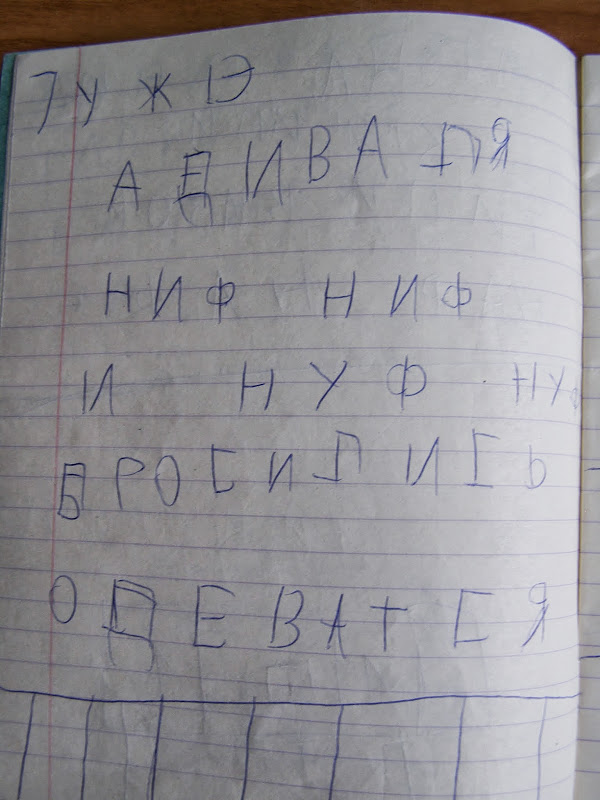 АДИВАЛЯ
НИФ НИФ
И НУФ НУФ
БРОСИЛИСЬ
ОДЕВАТСЯ